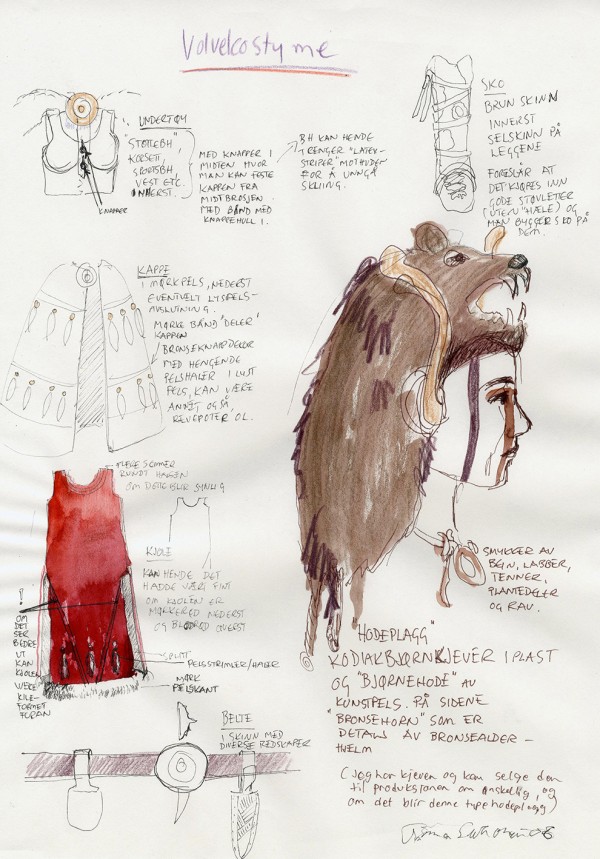 Volvekostyme
UNDERTØY
"STØTTEBH"
KORSETT,
SPORTSBH,
VEST ETC.
INNERST.
KNAPPER
MED KNAPPER I
MIDTEN HVOR
MAN KAN FESTE
KAPPEN FRA
MIDTBROSJEN
MED BÅND MED
KNAPPEHULL I.
BH KAN HENDE
TRENGER "LATEX-
STRIPER" MOT HUDEN
FOR Å UNNGÅ
SKLIING.
SKO
BRUN SKINN
INNERST
SELSKINN PÅ
LEGGENE
FORESLÅR AT
DET KJØPES INN
GODE STØVLETTER
(UTEN HÆLE) OG
MAN BYGGER SKO PÅ
DEM.
KAPPE
I MØRK PELS, NEDERST
EVENTUELT LYS PELS-
AVSLUTNING.
MØRKE BÅND "DELER"
KAPPEN
BRONSEKNAPPDEKOR
MED HENGENDE
PELSHALER I LYST
PELS, KAN VÆRE
ANNET OGSÅ,
REVEPOTER OL.
FLERE SØMMER
RUNDT HALSEN
OM DETTE BLIR SYNLIG
KJOLE
KAN HENDE DET
HADDE VÆRT FINT
OM KJOLEN ER
MØRKERØD NEDERST
OG BLODRØD ØVERST
!
OM
DET
SER
BEDRE
UT
KAN
KJOLEN
VÆRE
KILE-
FORMET
FORAN
SPLITT
PELSSTRIMLER/HALER
MØRK
PELSKANT
BELTE
I SKINN MED
DIVERSE REDSKAPER
SMYKKER AV
BEIN, LABBER,
TENNER,
PLANTEDELER
OG RAV.
"HODEPLAGG"
KODIAKBJØRNKJEVER I PLAST
OG "BJØRNEHODE" AV
KUNSTPELS. PÅ SIDENE
"BRONSEHORN" SOM ER
DETALJ AV BRONSEALDER-
HJELM
(Jeg har kjeven og kan selge den
til produksjonen om ønskelig, og
om det blir denne type hodeplagg)